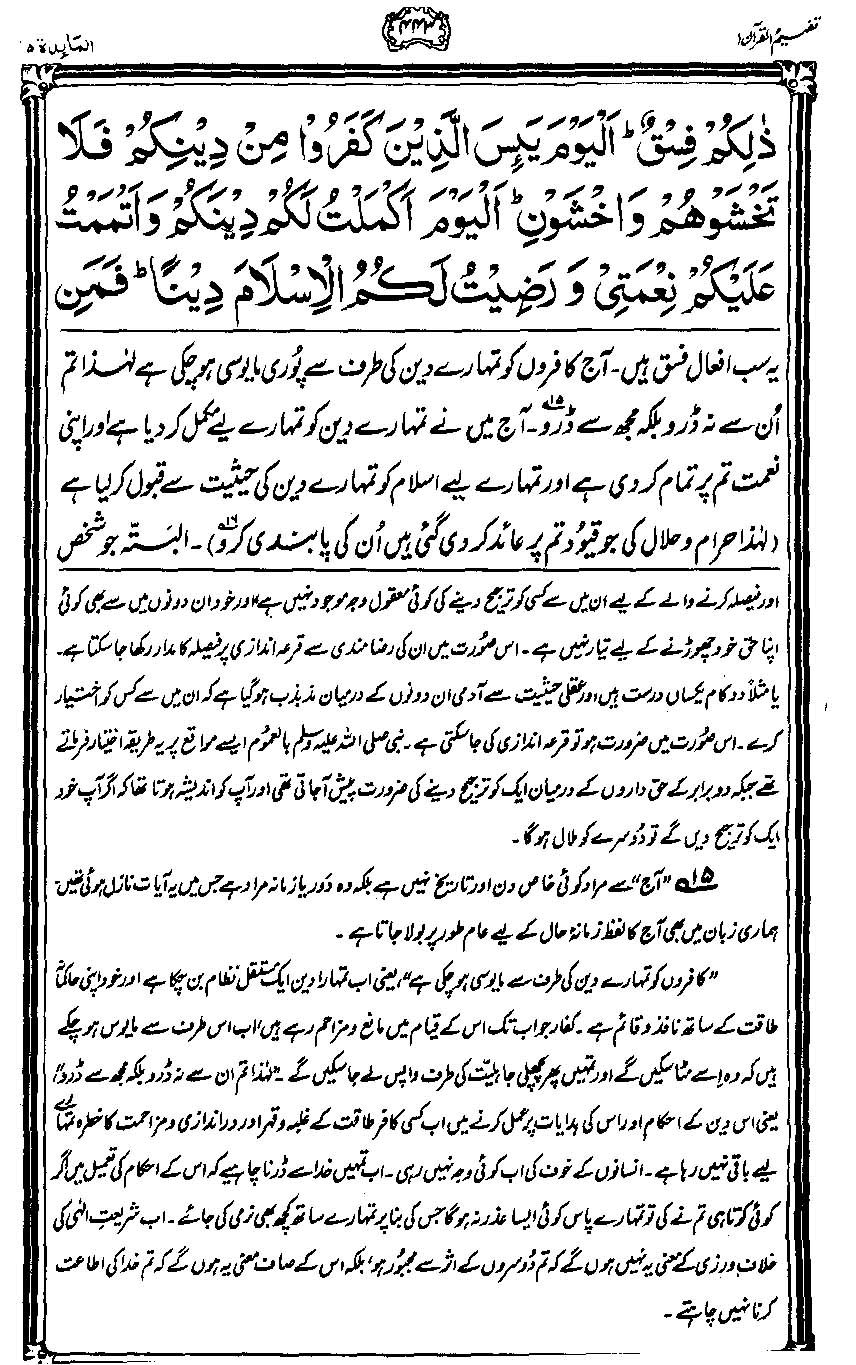 تفہیم القرآن ۱
۴۴۳
المائدة ۵
ذٰلِكُمْ فِسْقٌ ؕ اَلْيَوْمَ يَىِٕسَ الَّذِيْنَ كَفَرُوْا مِنْ دِيْنِكُمْ فَلَا
تَخْشَوْهُمْ وَاخْشَوْنِ ؕ اَلْيَوْمَ اَكْمَلْتُ لَكُمْ دِيْنَكُمْ وَاَتْمَمْتُ
عَلَيْكُمْ نِعْمَتِيْ وَ رَضِيْتُ لَكُمُ الْاِسْلَامَ دِيْنًا ؕ فَمَنِ
یہ سب افعال فسق ہیں۔ آج کافروں کو تمہارے دین کی طرف سے پُوری مایوسی ہو چکی ہے لہٰذا تم
اُن سے نہ ڈرو بلکہ مجھ سے ڈرو۱۵۔ آج میں نے تمہارے دین کو تمہارے لیے مکمل کر دیا ہے اور اپنی
نعمت تم پر تمام کر دی ہے اور تمہارے لیے اسلام کو تمہارے دین کی حیثیت سے قبول کر لیا ہے
(لہٰذا حرام و حلال کی جو قیوُد تم پر عائد کر دی گئی ہیں اُن کی پابندی کرو۱۶)۔ البتّہ جو شخص
اور فیصلہ کرنے والے کے لیے ان میں سے کسی کو ترجیح دینے کی کوئی معقول وجہ موجود نہیں ہے، اور خود ان دونوں میں سے بھی کوئی
اپنا حق خود چھوڑنے کے لیے تیار نہیں ہے۔ اس صُورت میں ان کی رضامندی سے قرعہ اندازی پر فیصلہ کا مدار رکھا جا سکتا ہے۔
یا مثلاً دو کام یکساں درست ہیں اور عقلی حیثیت سے آدمی ان دونوں کے درمیان مذبذب ہو گیا ہے کہ ان میں سے کس کو اختیار
کرے۔ اس صُورت میں ضرورت ہو تو قرعہ اندازی کی جا سکتی ہے۔ نبی صلی اللہ علیہ وسلم بالعموُم ایسے مواقع پر یہ طریقہ اختیار فرماتے
تھے جبکہ دو برابر کے حق داروں کے درمیان ایک کو ترجیح دینے کی ضرورت پیش آجاتی تھی اور آپ کو اندیشہ ہوتا تھا کہ اگر آپ خود
ایک کو ترجیح دیں گے تو دُوسرے کو ملال ہوگا۔
۱۵ "آج" سے مراد کوئی خاص دن اور تاریخ نہیں ہے بلکہ وہ دَور یا زمانہ مراد ہے جس میں یہ آیات نازل ہوئی تھیں۔
ہماری زبان میں بھی آج کا لفظ زمانۂ حال کے لیے عام طور پر بولا جاتا ہے۔
"کافروں کو تمہارے دین کی طرف سے مایوسی ہو چکی ہے"، یعنی اب تمہارا دین ایک مستقل نظام بن چکا ہے اور خود اپنی حاکمانہ
طاقت کے ساتھ نافذ و قائم ہے۔ کفار جو اب تک اس کے قیام میں مانع و مزاحم رہے ہیں، اب اس طرف سے مایوس ہو چکے
ہیں کہ وہ اِسے مٹا سکیں گے اور تمہیں پھر پچھلی جاہلیّت کی طرف واپس لے جا سکیں گے۔ "لہٰذا تم ان سے نہ ڈرو بلکہ مجھ سے ڈرو"،
یعنی اس دین کے احکام اور اس کی ہدایات پر عمل کرنے میں اب کسی کافر طاقت کے غلبہ و قہر اور در اندازی و مزاحمت کا خطرہ تمہارے
لیے باقی نہیں رہا ہے۔ انسانوں کے خوف کی اب کوئی وجہ نہیں رہی۔ اب تمہیں خدا سے ڈرنا چاہیے کہ اس کے احکام کی تعمیل میں اگر
کوئی کوتاہی تم نے کی تو تمہارے پاس کوئی ایسا عذر نہ ہوگا جس کی بنا پر تمہارے ساتھ کچھ بھی نرمی کی جائے۔ اب شریعتِ الٰہی کی
خلاف ورزی کے معنی یہ نہیں ہوں گے کہ تم دُوسروں کے اثر سے مجبُور ہو، بلکہ اس کے صاف معنی یہ ہوں گے کہ تم خدا کی اطاعت
کرنا نہیں چاہتے۔